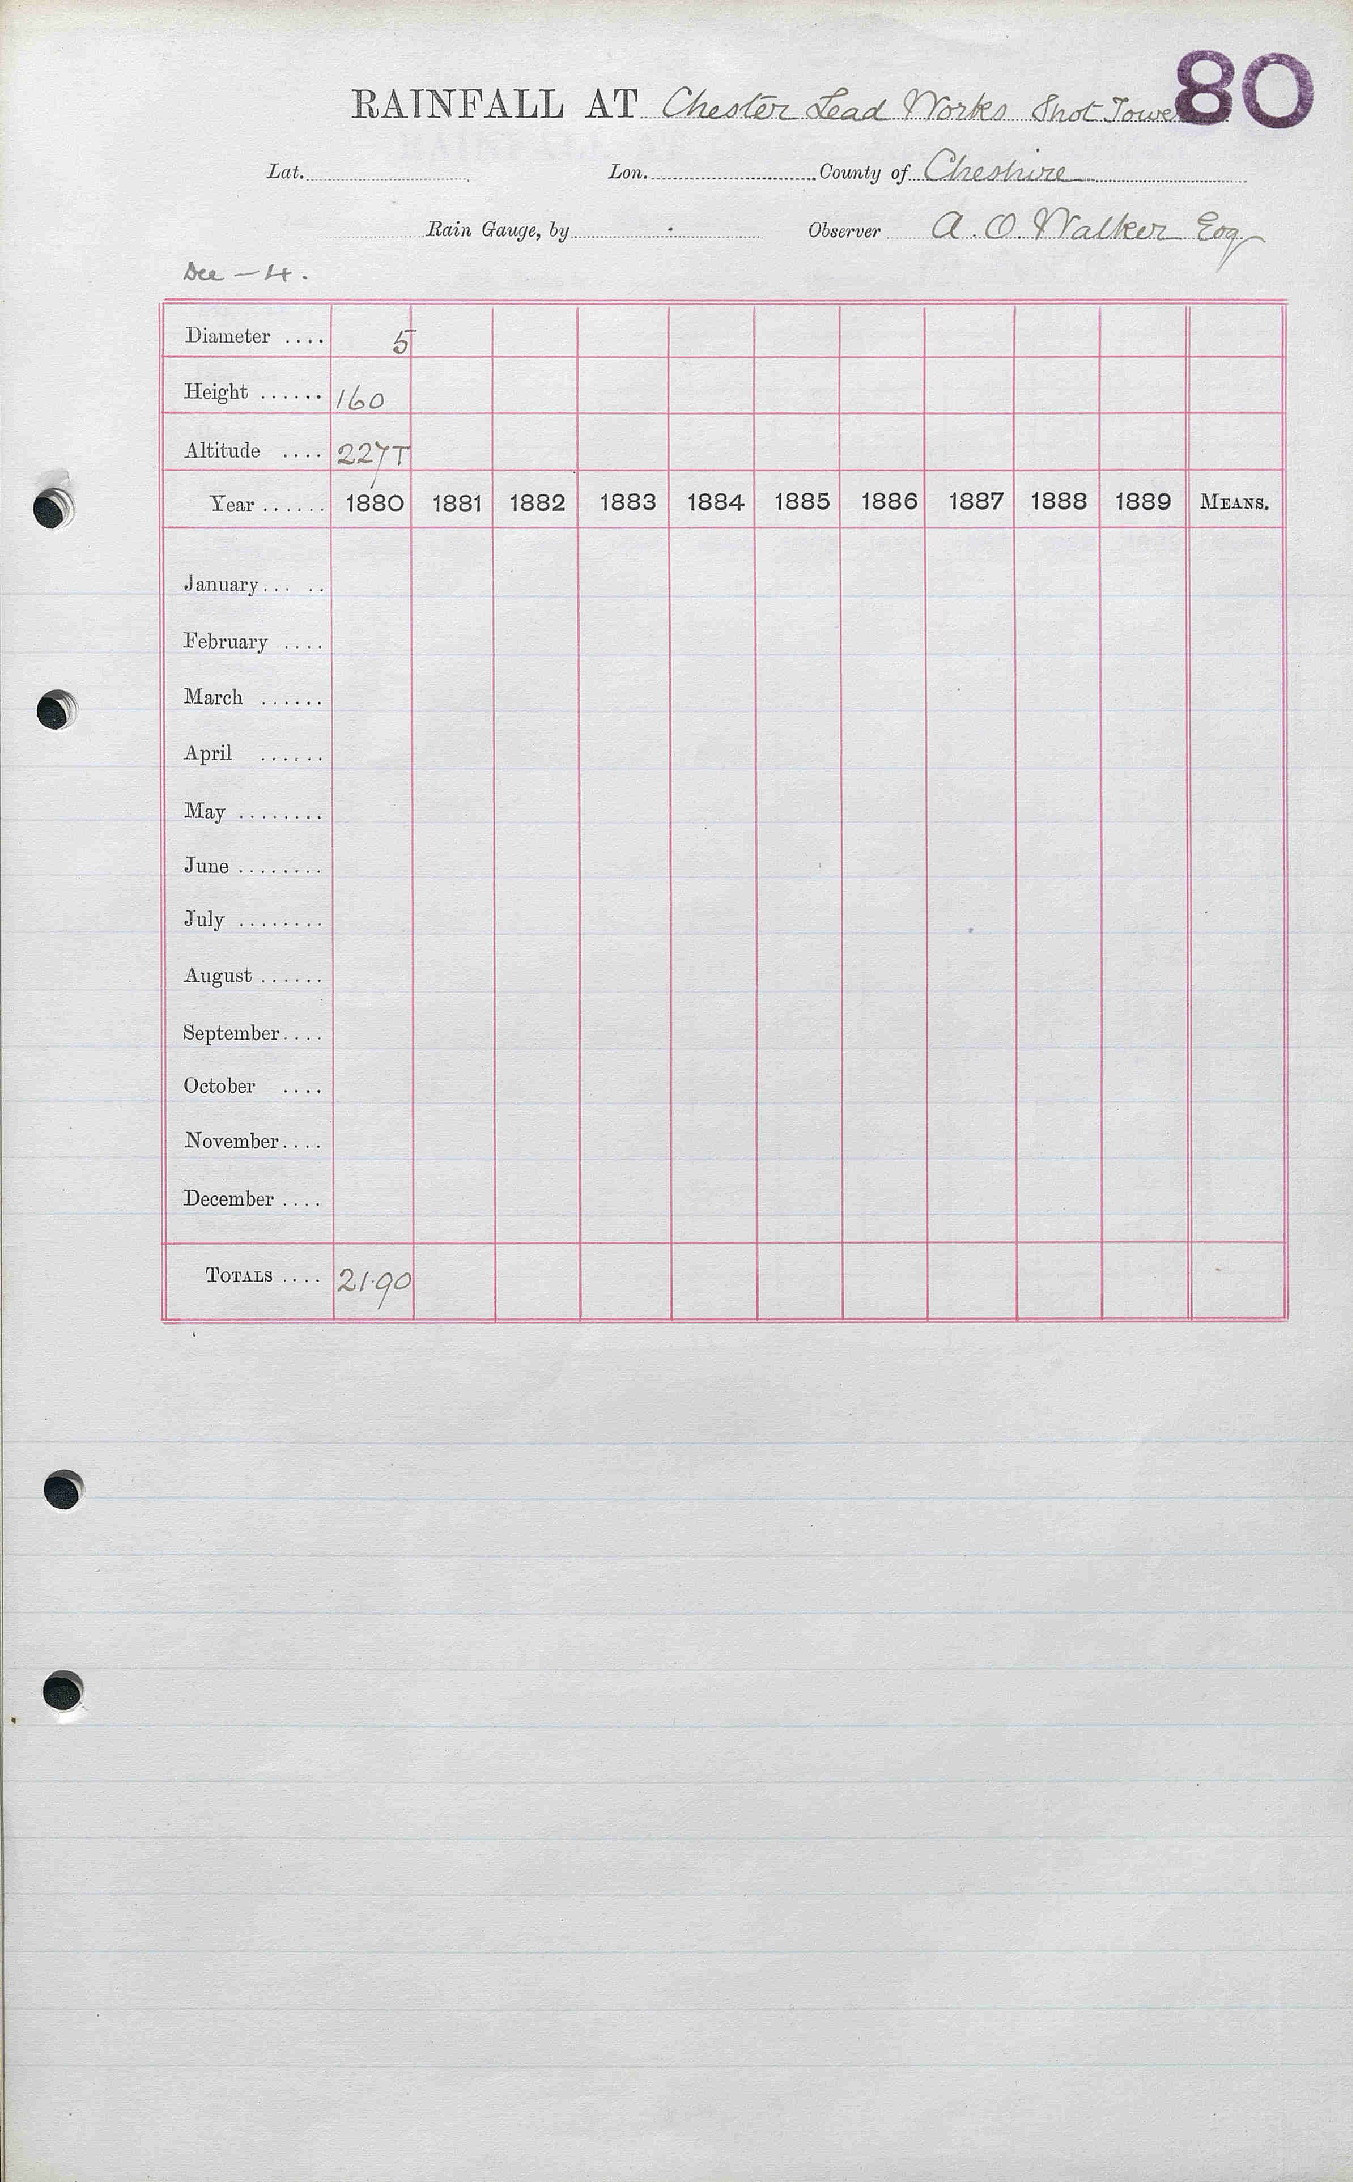 80
RAINFALL AT Chester Lead Works Shot Tower
Lat. Lon. County of Cheshire
Rain Gauge, by Observer A. O. Walker Esq
Dee - 4.
Diameter .... 5
Height ...... 160
Altitude .... 227T
Year ...... 1880 1881 1882 1883 1884 1885 1886 1887 1888 1889 MEANS.
January... ..
February ....
March ......
April ......
May ........
June ........
July ........
August ......
September....
October ....
November....
December ....
TOTALS .... 21.90